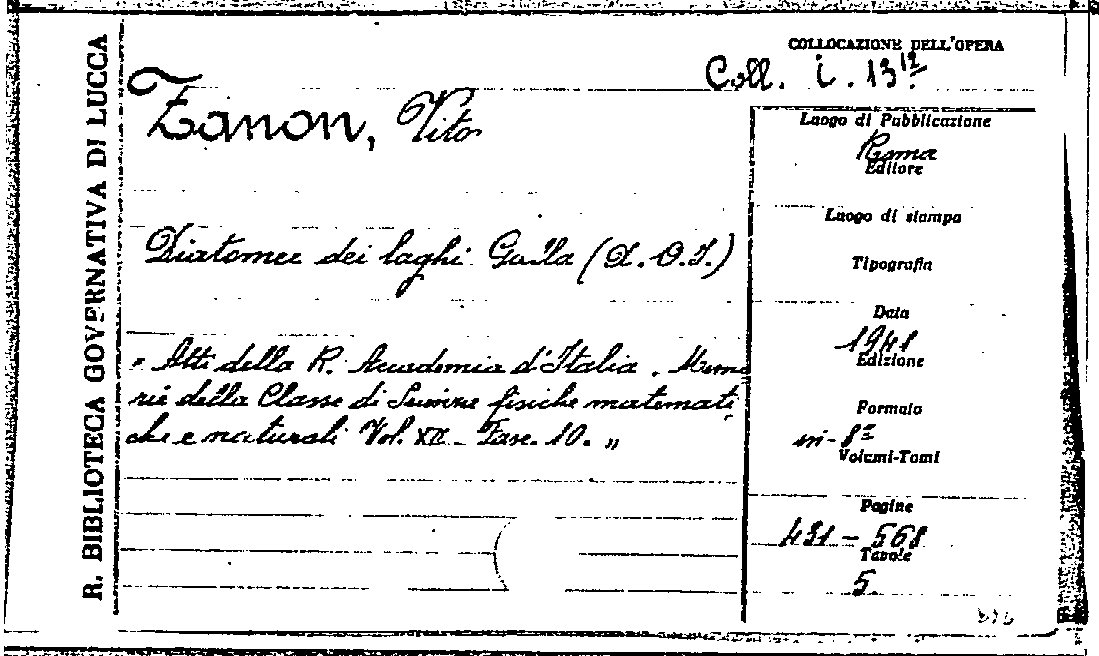 R. BIBLIOTECA GOVERNATIVA DI LUCCA
COLLOCAZIONE DELL'OPERA
Coll. i. 13
Zanon, Vito
Diatomee dei laghi Galla (A.O.I.)
„ Atti della R. Accademia d'Italia . Memo
rie della Classe di Scienze fisiche matemati
che e naturali Vol. XII - Fasc. 10. „
Luogo di Pubblicazione
Roma
Editore
Luogo di stampa
Tipografia
Data
1941
Edizione
Formato
in-8º
Volumi-Tomi
Pagine
431 - 568
Tavole
5.